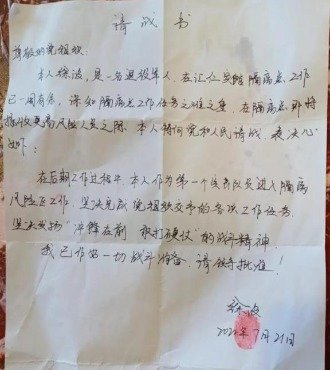 请战书
尊敬的党组织:
本人徐波,是一名退役军人,在汇仁宾馆隔离点工作
已一周有余,深知隔离点工作任务之艰之重,在隔离点即将
接收更高风险人员之际,本人特向党和人民请战,表决心
如下:
在后期工作过程中,本人作为第一个突击队员进入隔离
风险区工作,坚决完成党组织交予的各项工作任务,
坚决发扬“冲锋在前 敢打硬仗”的战斗精神
我已作好一切战斗准备,请领导批准!
徐波
2021年7月21日